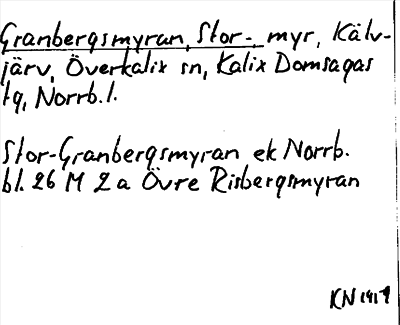 Granbergsmyran, Stor-, myr, Kälv-
järv, Överkalix sn, Kalix Domsagas
tg, Norrb. l.
Stor-Granbergsmyran ek Norrb.
bl. 26 M 2 a Övre Risbergsmyran